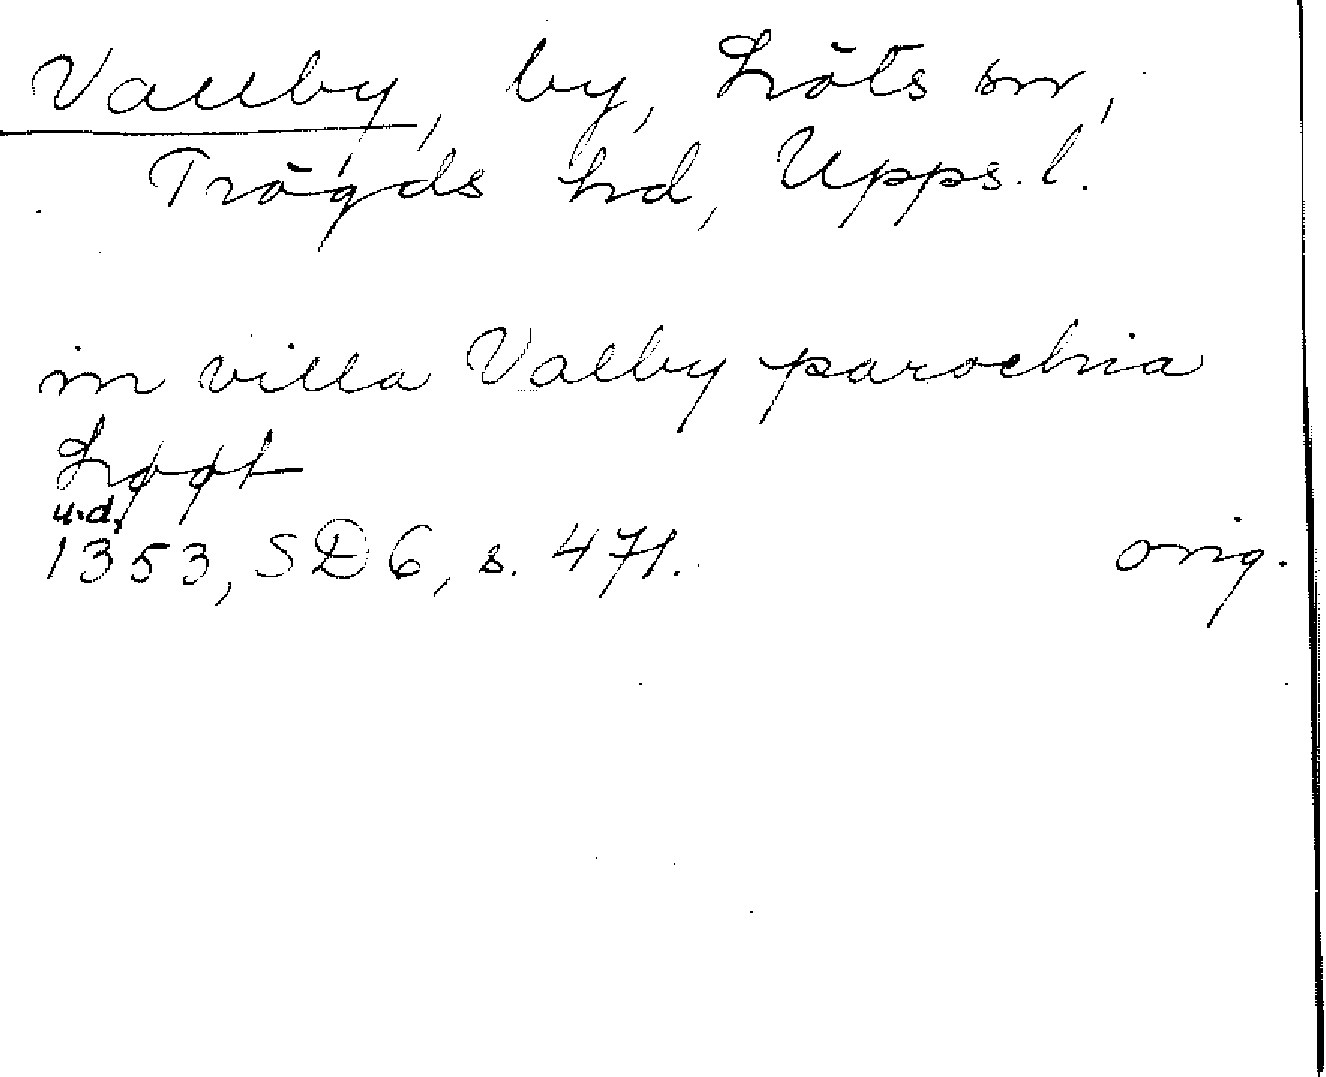 Vallby, by, Löts sn,
Trögds hd, Upps. l.
in villa Valby parochia
Løøt
u.d.
1353, SD 6, s. 471. orig.